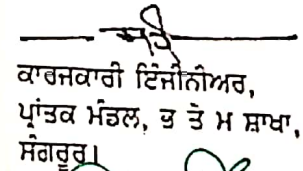 ਸਹੀ
ਕਾਰਜਕਾਰੀ ਇੰਜੀਨੀਅਰ,
ਪ੍ਰਾਂਤਕ ਮੰਡਲ, ਭ ਤੇ ਮ ਸ਼ਾਖਾ,
ਸੰਗਰੂਰ।